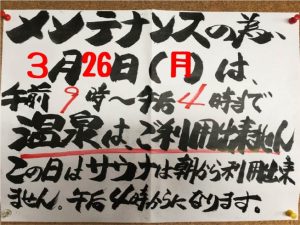 メンテナンスの為、
3月26日(月)は、
午前9時～午后4時まで
温泉は、ご利用出来ません
この日はサウナは朝から利用出来
ません。午后4時からになります。